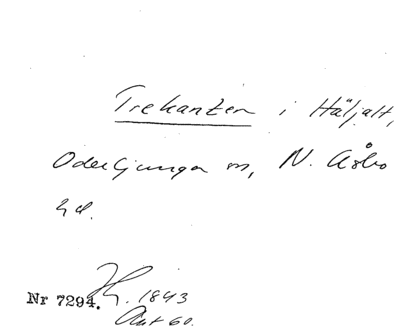 Trekanten i Häljalt,
Oderljunga sn, N. Åsbo
hd.
Nr 7294. H. 1843
Akt 60.